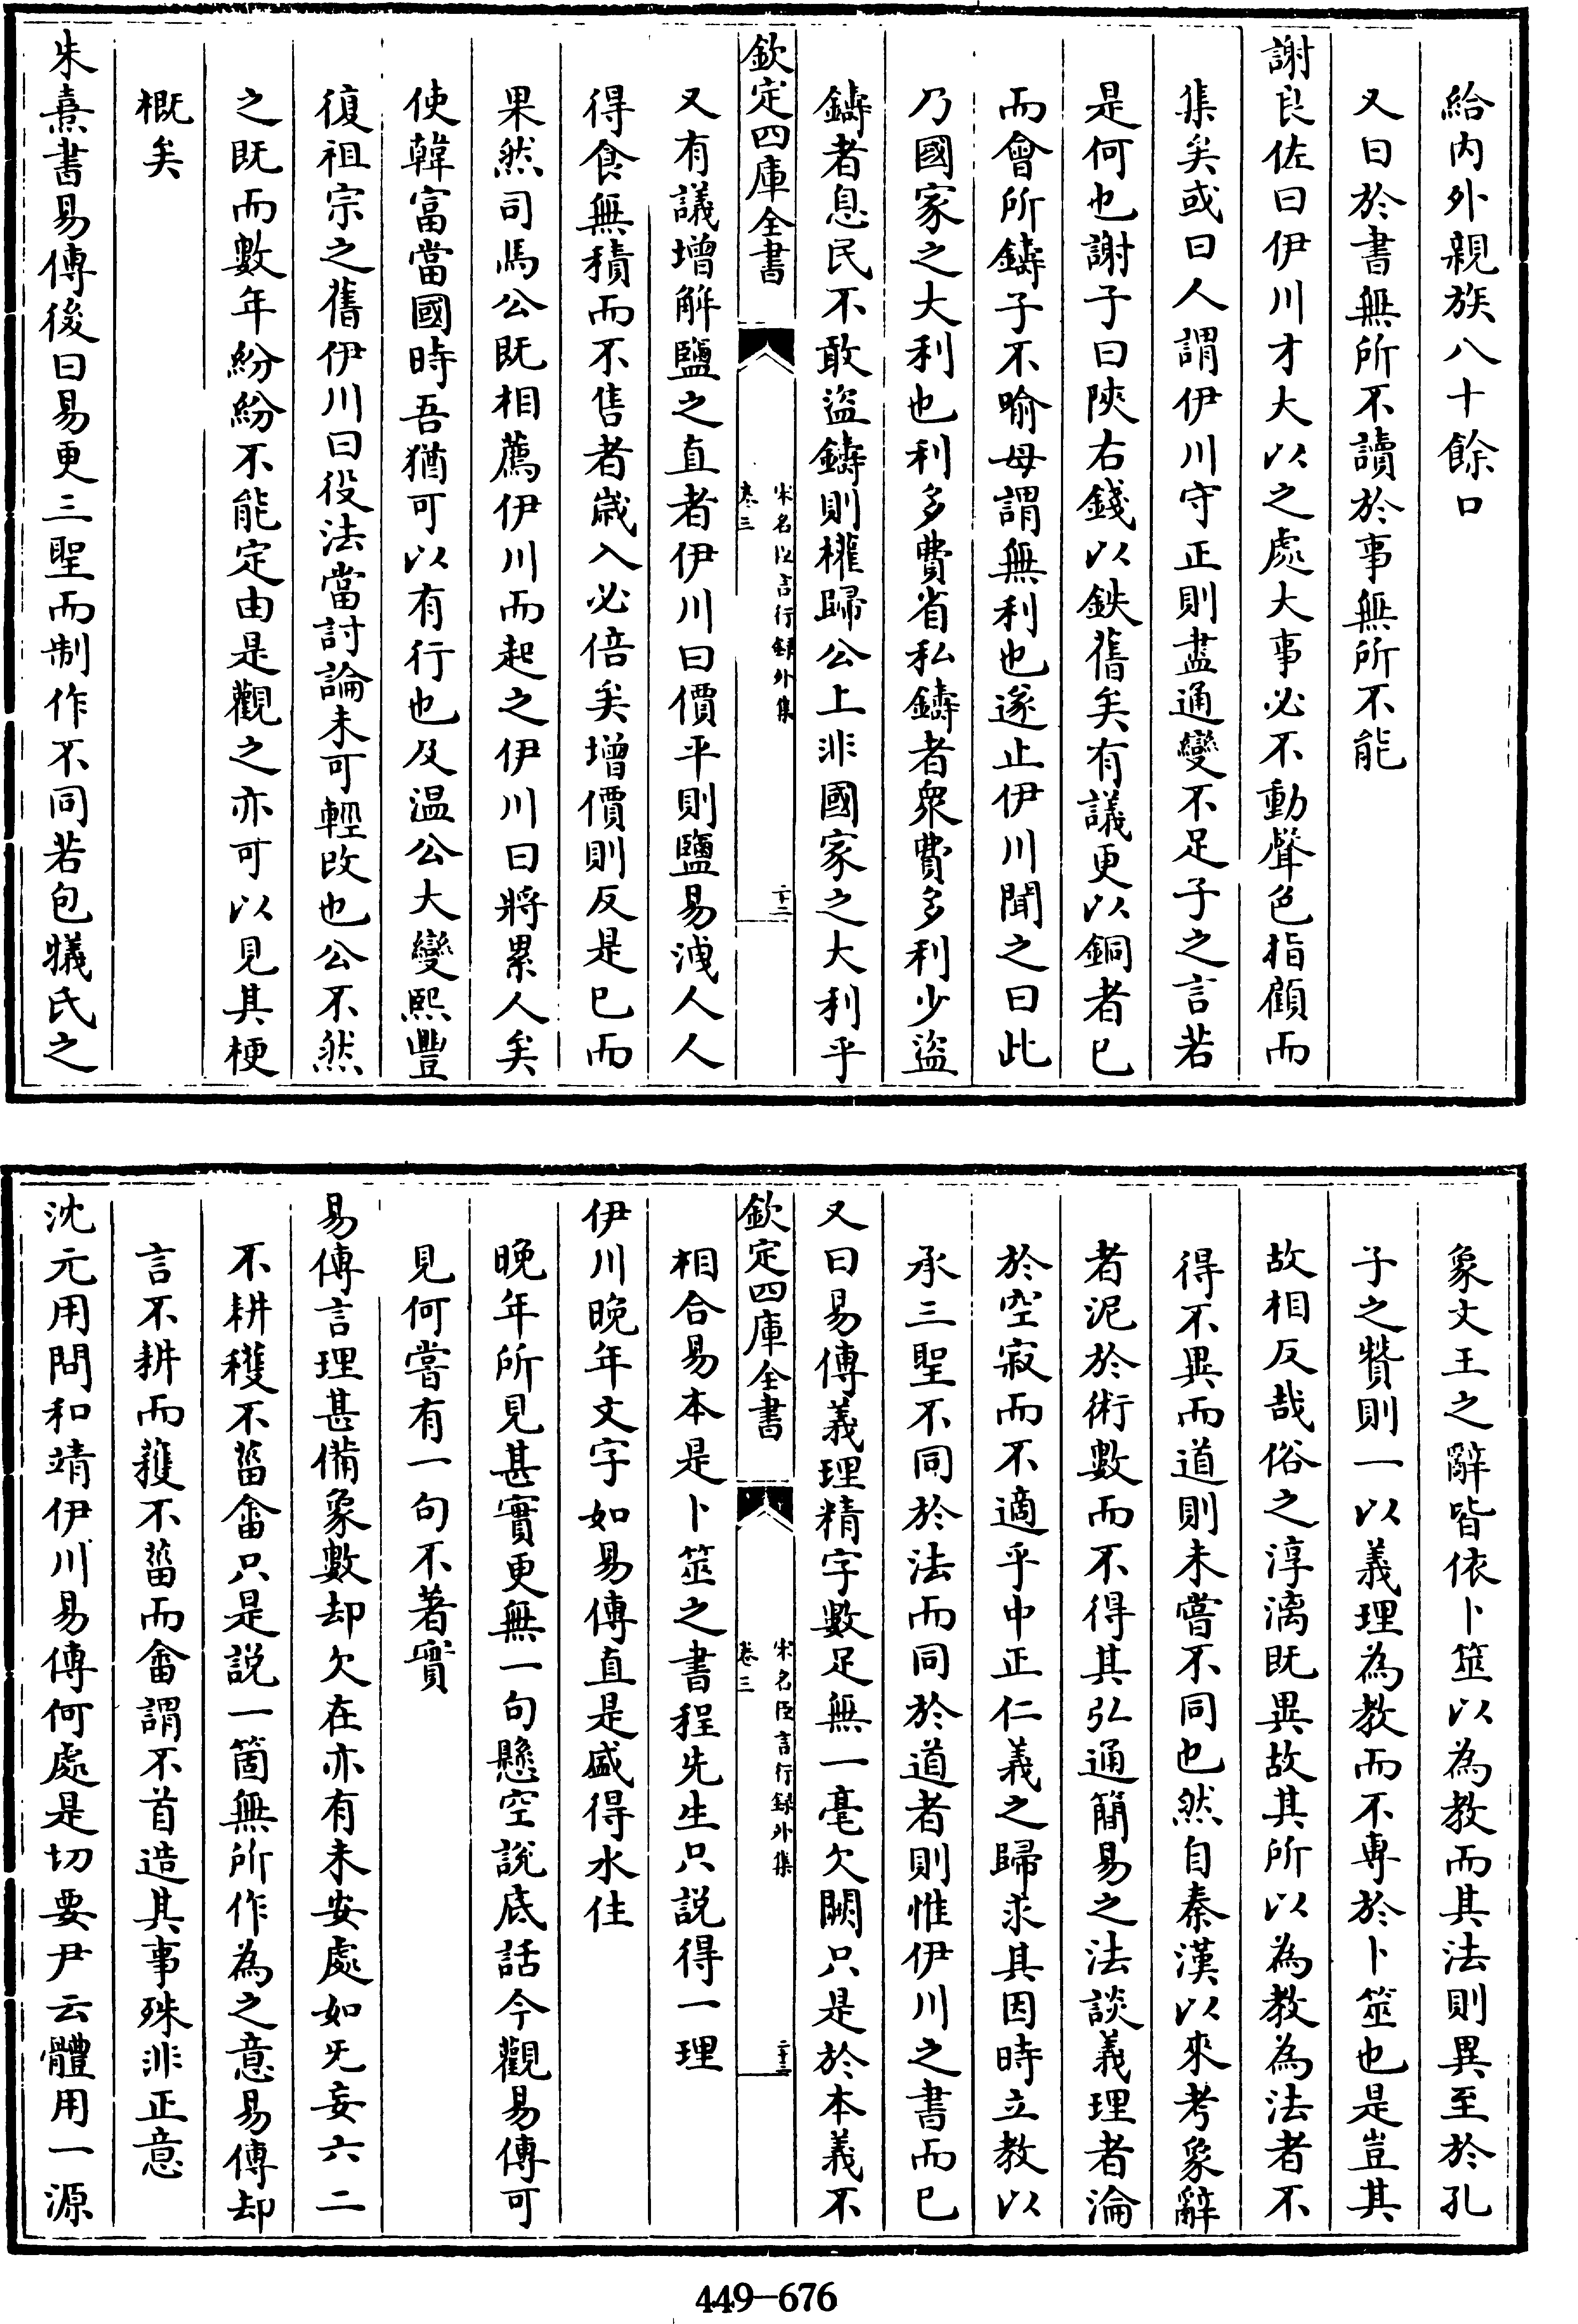 給内外親族八十餘口
又曰於書無所不讀於事無所不能
謝良佐曰伊川才大以之處大事必不動聲色指顧而
集矣或曰人謂伊川守正則盡通變不足子之言若
是何也謝子曰陜右錢以鉄舊矣有議更以銅者已
而會所鑄子不喻母謂無利也遂止伊川聞之曰此
乃國家之大利也利多費省私鑄者衆費多利少盜
鑄者息民不敢盜鑄則權歸公上非國家之大利乎
欽定四庫全書
宋名臣言行録外集
卷三
二十二
又有議增解鹽之直者伊川曰價平則鹽易洩人人
得食無積而不售者歲入必倍矣增價則反是已而
果然司馬公既相薦伊川而起之伊川曰將累人矣
使韓富當國時吾猶可以有行也及温公大變熙豐
復祖宗之舊伊川曰役法當討論未可輕改也公不然
之既而數年紛紛不能定由是觀之亦可以見其梗
概矣
朱熹書易傳後曰易更三聖而制作不同若包犧氏之
象文王之辭皆依卜筮以為教而其法則異至於孔
子之贊則一以義理為教而不專於卜筮也是豈其
故相反哉俗之淳漓既異故其所以為教為法者不
得不異而道則未嘗不同也然自秦漢以來考象辭
者泥於術數而不得其弘通簡易之法談義理者淪
於空寂而不適乎中正仁義之歸求其因時立教以
承三聖不同於法而同於道者則惟伊川之書而已
又曰易傳義理精字數足無一毫欠闕只是於本義不
欽定四庫全書
宋名臣言行録外集
卷三
二十三
相合易本是卜筮之書程先生只説得一理
伊川晚年文字如易傳直是盛得水住
晚年所見甚實更無一句懸空説底話今觀易傳可
見何嘗有一句不著實
易傳言理甚備象數却欠在亦有未安處如旡妄六二
不耕穫不菑畬只是説一箇無所作為之意易傳却
言不耕而穫不菑而畬謂不首造其事殊非正意
沈元用問和靖伊川易傳何處是切要尹云體用一源
449-676